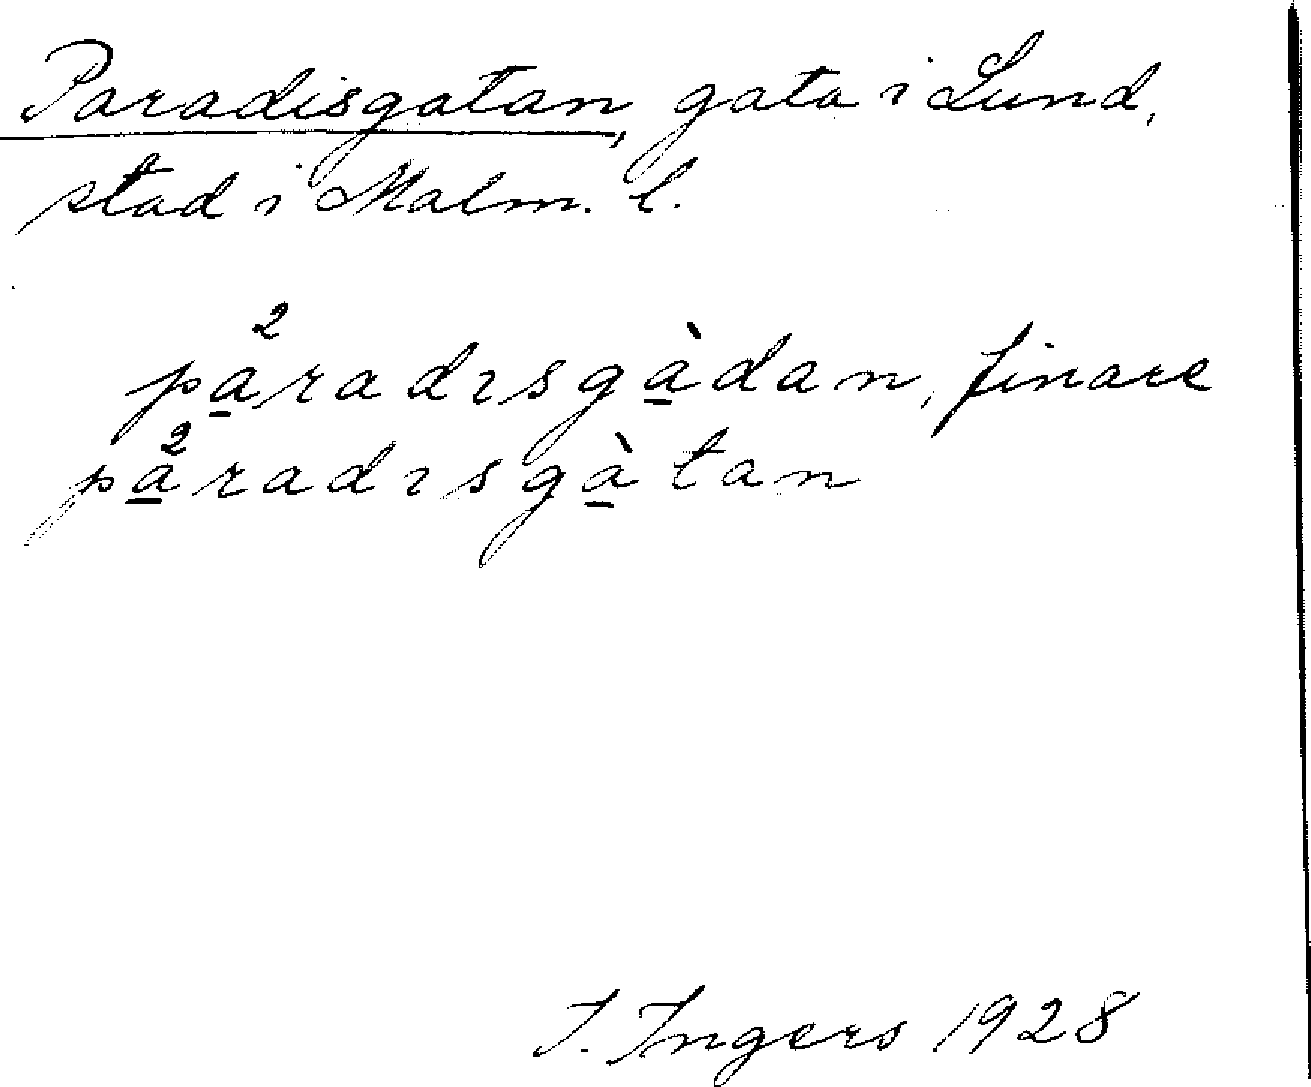 Paradisgatan, gata i Lund,
stad i Malm. l.
pa̲²radısgà̲dan, finare
pa̲²radısgà̲tan
I. Ingers 1928